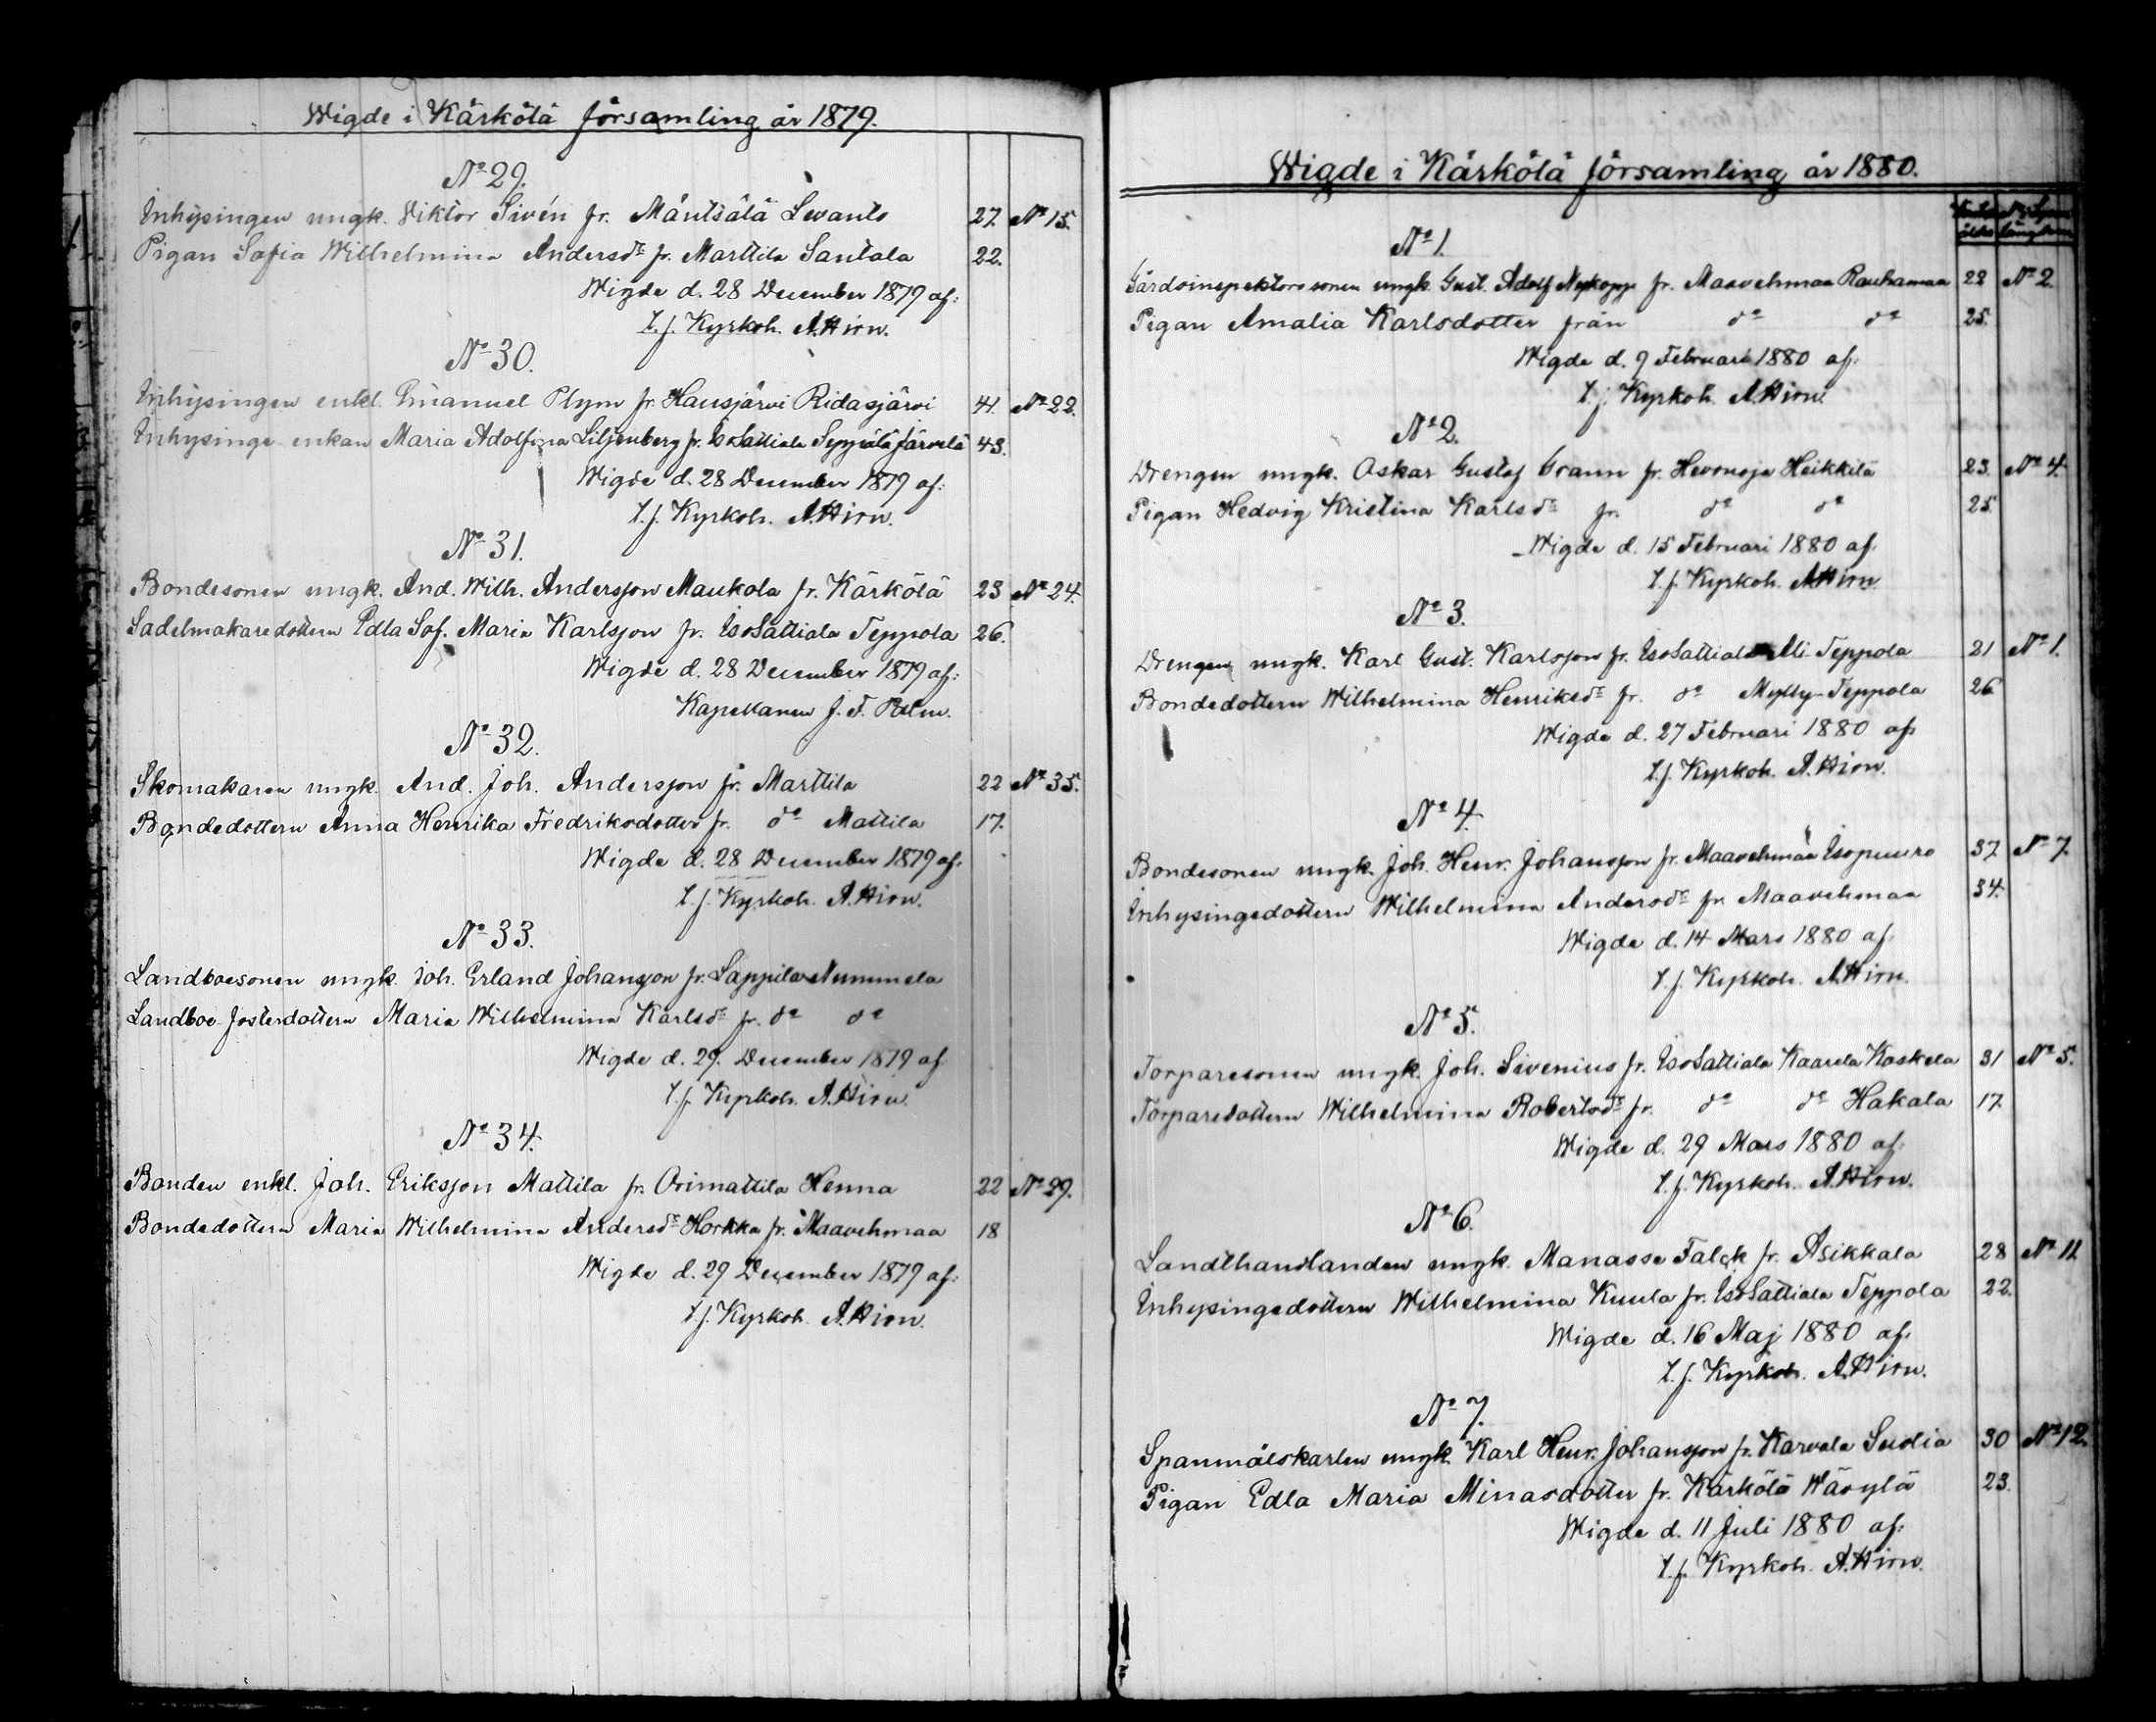 Wigde i Kärkölä församling år 1879.
No 29.
Inhysingen ungk. Viktor Sivén fr. Mäntsälä Levanto 27. No 15.
Pigan Sofia Wilhelmina Andersdr fr. Marttila Santala 22.
Wigde d. 28 December 1879 af:
t.f. Kyrkoh. A. Hirn.
No 30.
Inhysingen enkl. Emanuel Plym fr. Hausjärvi Ridasjärvi 41. No 22.
Inhysinge enkan Maria Adolfina Liljenberg fr. IsoSattiala Seppälä Järvelä 43.
Wigde d. 28 December 1879 af:
t.f. Kyrkoh. A. Hirn.
No 31.
Bondesonen ungk. And. Wilh. Andersson Maukola fr. Kärkölä 23 No 24.
Sadelmakaredottern Edla Sof. Maria Karlsson fr. IsoSattiala Teppola 26.
Wigde d. 28 December 1879 af:
Kapellanen J. F. Palm.
No 32.
Skomakaren ungk. And. Joh. Andersson fr. Marttila 22 No 35.
Bondedottern Anna Henrika Fredriksdotter fr. do Mattila 17.
Wigde d. 28 December 1879 af:
t.f. Kyrkoh. A. Hirn.
No 33.
Landboesonen ungk. Joh. Erland Johansson fr. Lappila Nummela
Landboe-fosterdottern Maria Wilhelmina Karlsdr fr. do do
Wigde d. 29. December 1879 af
t.f. Kyrkoh. A. Hirn.
No 34.
Bonden enkl. Joh. Eriksson Mattila fr. Orimattila Henna 22 No 29.
Bondedottern Maria Wilhelmina Andersdr Horkka fr. Maavehmaa 18
Wigde d. 29 December 1879 af:
t.f. Kyrkoh. A. Hirn.
Wigde i Kärkölä församling år 1880.
No 1.
Gårdsinspektorssonen ungk. Gust. Adolf Nykopp fr. Maavehmaa Rauhamaa 22 No 2.
Pigan Amalia Karlsdotter från do do 25.
Wigde d. 9 Februari 1880 af:
t.f. Kyrkoh. A. Hirn.
No 2.
Drengen ungk. Oskar Gustaf Grann fr. Hevonoja Heikkilä 23. No 4.
Pigan Hedvig Kristina Karlsdr fr. do do 25.
Wigde d. 15 Februari 1880 af.
t.f. Kyrkoh. A. Hirn.
No 3.
Drengen ungk. Karl Gust. Karlsson fr. IsoSattiala Ali-Teppola 21 No 1.
Bondedottern Wilhelmina Henriksdr fr. do Mylly-Teppola 26
Wigde d. 27 Februari 1880 af:
t.f. Kyrkoh. A. Hirn.
No 4.
Bondesonen ungk. Joh. Henr. Johansson fr. Maavehmaa Isopuuro 37. No 7.
Inhysingedottern Wilhelmina Andersdr fr. Maavehmaa 34.
Wigde d. 14 Mars 1880 af:
t.f. Kyrkoh. A. Hirn.
No 5.
Torparesonen ungk. Joh. Sivenius fr. IsoSattiala Kaarela Koskela 31 No 5.
Torparedottern Wilhelmina Robertsdr fr. do do Hakala 17.
Wigde d. 29 Mars 1880 af:
t.f. Kyrkoh. A. Hirn.
No 6.
Landthandlanden ungk. Manasse Falck fr. Asikkala 28 No 11
Inhysingedottern Wilhelmina Kuula fr. IsoSattiala Teppola 22.
Wigde d. 16 Maj 1880 af:
t.f. Kyrkoh. A. Hirn.
No 7.
Spanmålskarlen ungk. Karl Henr. Johansson fr. Karvala Suolia 30 No 12.
Pigan Edla Maria Minasdotter fr. Kärkölä Wäsylä 23.
Wigde d. 11 Juli 1880 af:
t.f. Kyrkoh. A. Hirn.